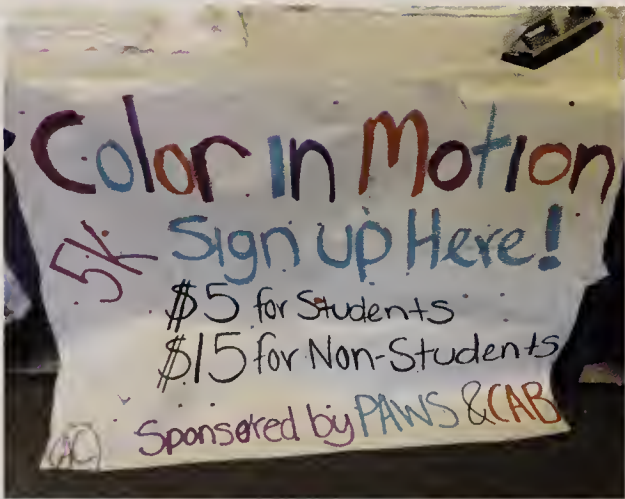 Color in Motion
5k Sign up Here!
$5 for Students
$15 for Non-Students
Sponsored by PAWS & CAB